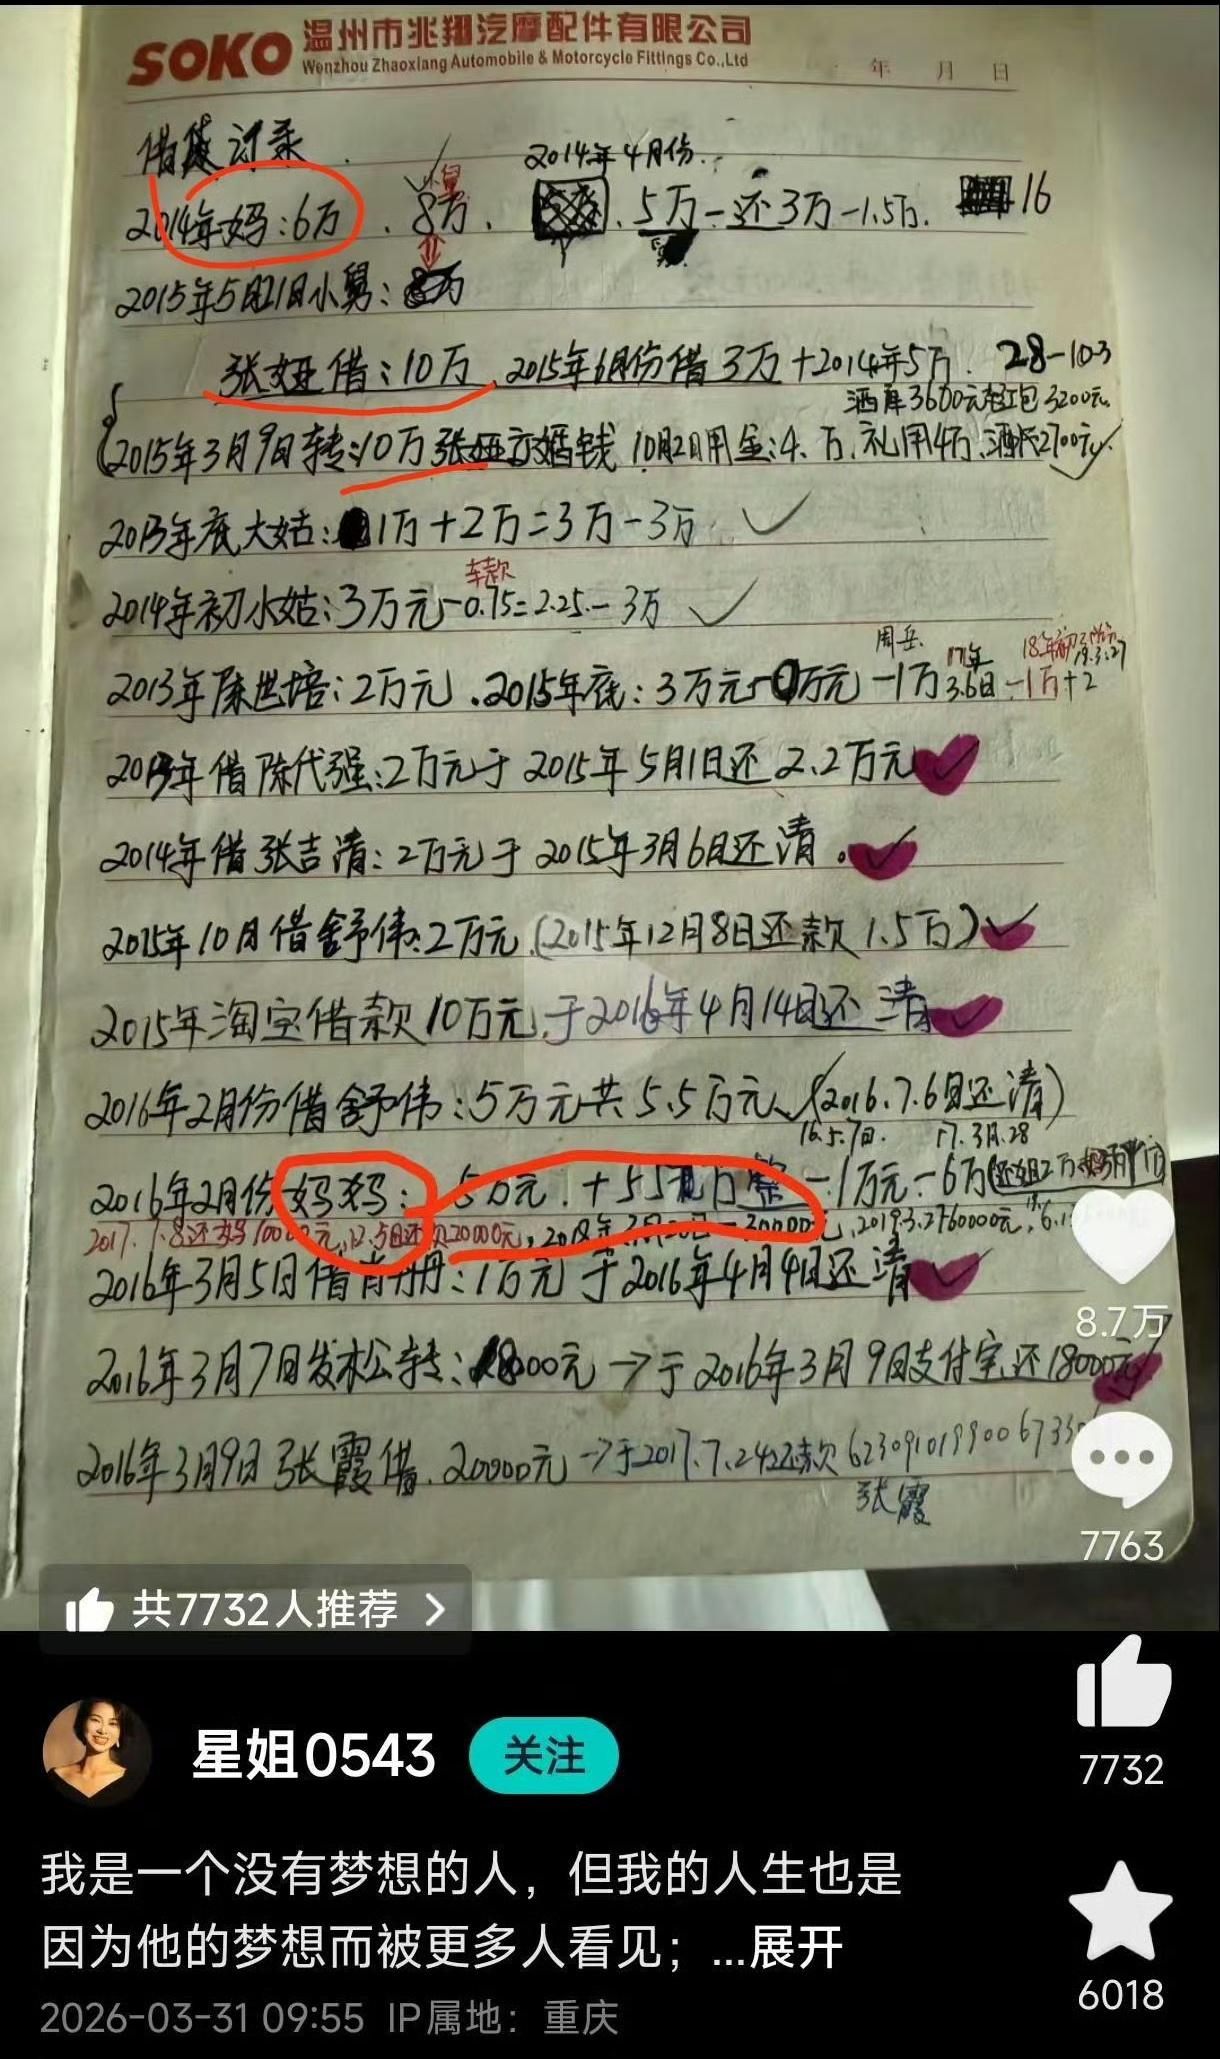 SOKO 温州市兆翔汽摩配件有限公司
Wenzhou Zhaoxiang Automobile & Motorcycle Fittings Co.,Ltd
年 月 日
借贷记录
2014年4月份
2014年妈:6万 . 8万 . 5万-还3万-1.5万. 16
小舅
2015年5月21日小舅: 8万
张娅借:10万 2015年6月份借3万+2014年5万. 28-10-3
酒库3600元 红包3200元
2015年3月9日转:10万张娅 婚钱 10月2日用金:4.万.礼用4万. 2700元
2013年底大姑: 1万+2万=3万-3万
车款
2014年初小姑:3万元-0.75=2.25-3万
周岳 17年 18年初
2013年陈世培:2万元.2015年底:3万元- 万元-1万 3.6日-1万+2
借陈代强:2万元于2015年5月1日还2.2万元
2014年借张吉清:2万元于2015年3月6日还清.
2015年10月借舒伟:2万元.(2015年12月8日还款1.5万)
2015年淘宝借款10万元.于2016年4月14日还清
2016年2月份借舒伟:5万元共5.5万元(2016.7.6日还清)
16.5.7日. 17.3月.28
2016年2月份妈妈: 5万元.+5.5 万 整-1万元-6万
2017.7.8还妈10000元,12.5日还 20000元, 30000元,2019.3.27 60000元,
2016年3月5日借肖丹:1万元于2016年4月4日还清
2016年3月7日发松转:18000元→于2016年3月9日支付宝还18000元
2016年3月9日张霞借.20000元→于2017.7.24还款
张霞
8.7万
7763
共7732人推荐 >
7732
星姐0543 关注
我是一个没有梦想的人，但我的人生也是
因为他的梦想而被更多人看见；...展开
6018
2026-03-31 09:55 IP属地：重庆